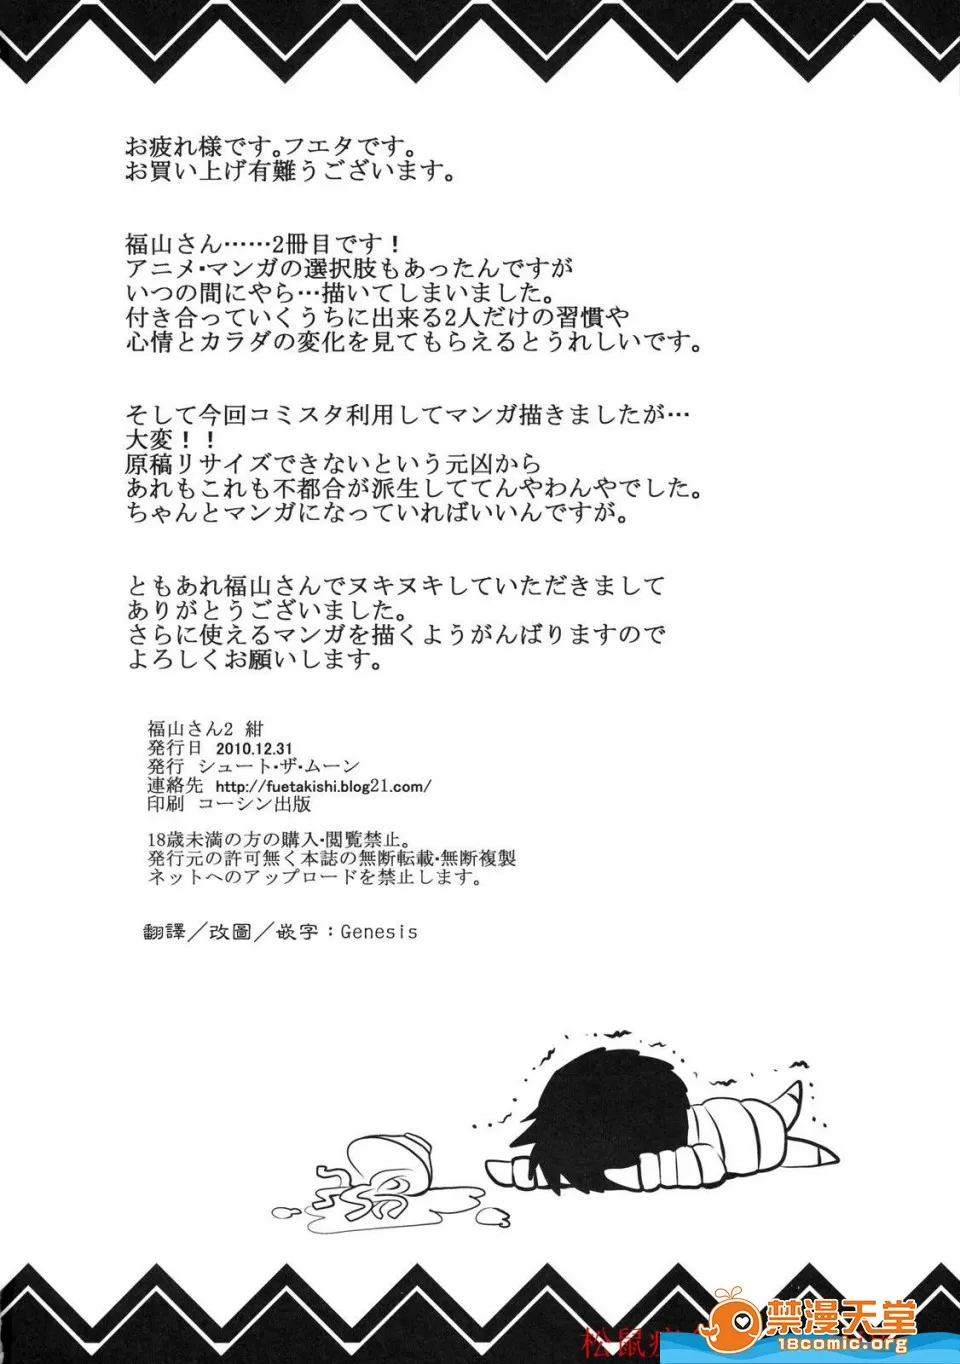 お疲れ様です。フエタです。
お買い上げ有難うございます。
福山さん……2冊目です！
アニメ・マンガの選択肢もあったんですが
いつの間にやら…描いてしまいました。
付き合っていくうちに出来る2人だけの習慣や
心情とカラダの変化を見てもらえるとうれしいです。
そして今回コミスタ利用してマンガ描きましたが…
大変！！
原稿リサイズできないという元凶から
あれもこれも不都合が派生しててんやわんやでした。
ちゃんとマンガになっていればいいんですが。
ともあれ福山さんでヌキヌキしていただきまして
ありがとうございました。
さらに使えるマンガを描くようがんばりますので
よろしくお願いします。
福山さん2 紺
発行日 2010.12.31
発行 シュート・ザ・ムーン
連絡先 http://fuetakishi.blog21.com/
印刷 コーシン出版
18歳未満の方の購入・閲覧禁止。
発行元の許可無く本誌の無断転載・無断複製
ネットへのアップロードを禁止します。
翻譯／改圖／嵌字：Genesis
禁漫天堂
18comic.org
松鼠